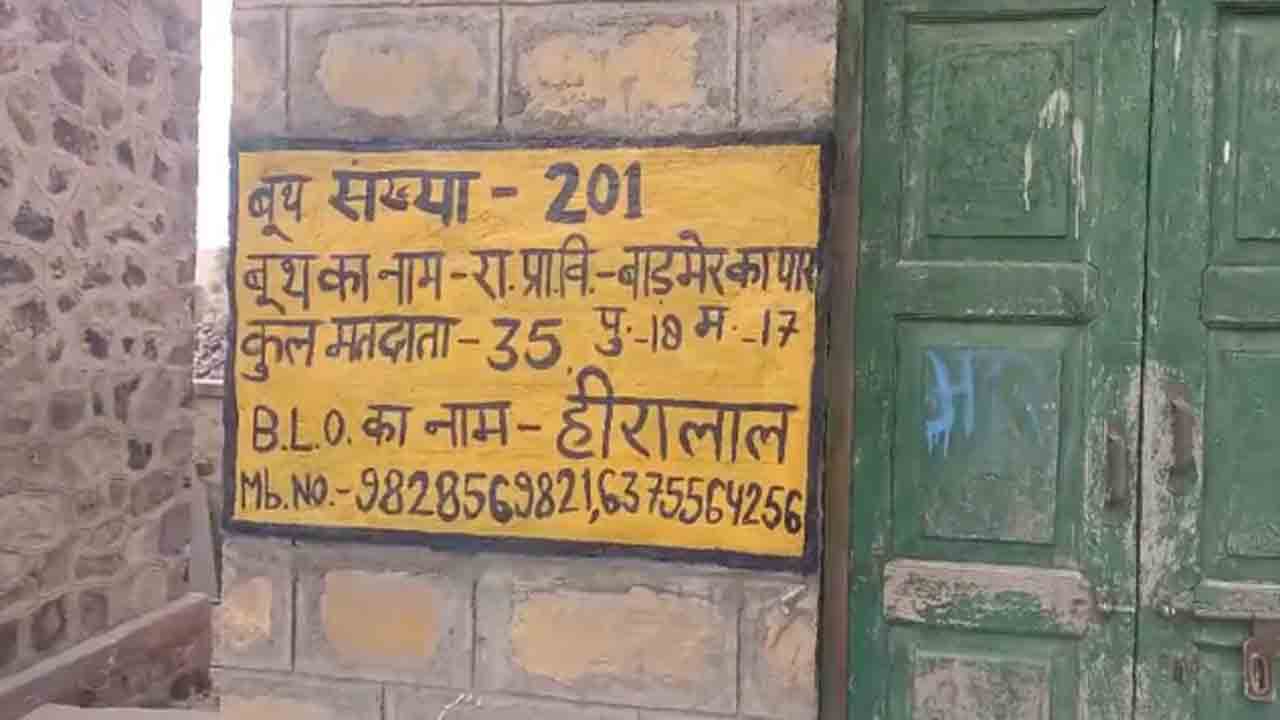 बूथ संख्या - 201
बूथ का नाम - रा.प्रा.वि. - बाड़मेर का पार
कुल मतदाता - 35, पु.-18 म.-17
B.L.O. का नाम - हीरालाल
Mb.NO.- 9828569821,6375564256